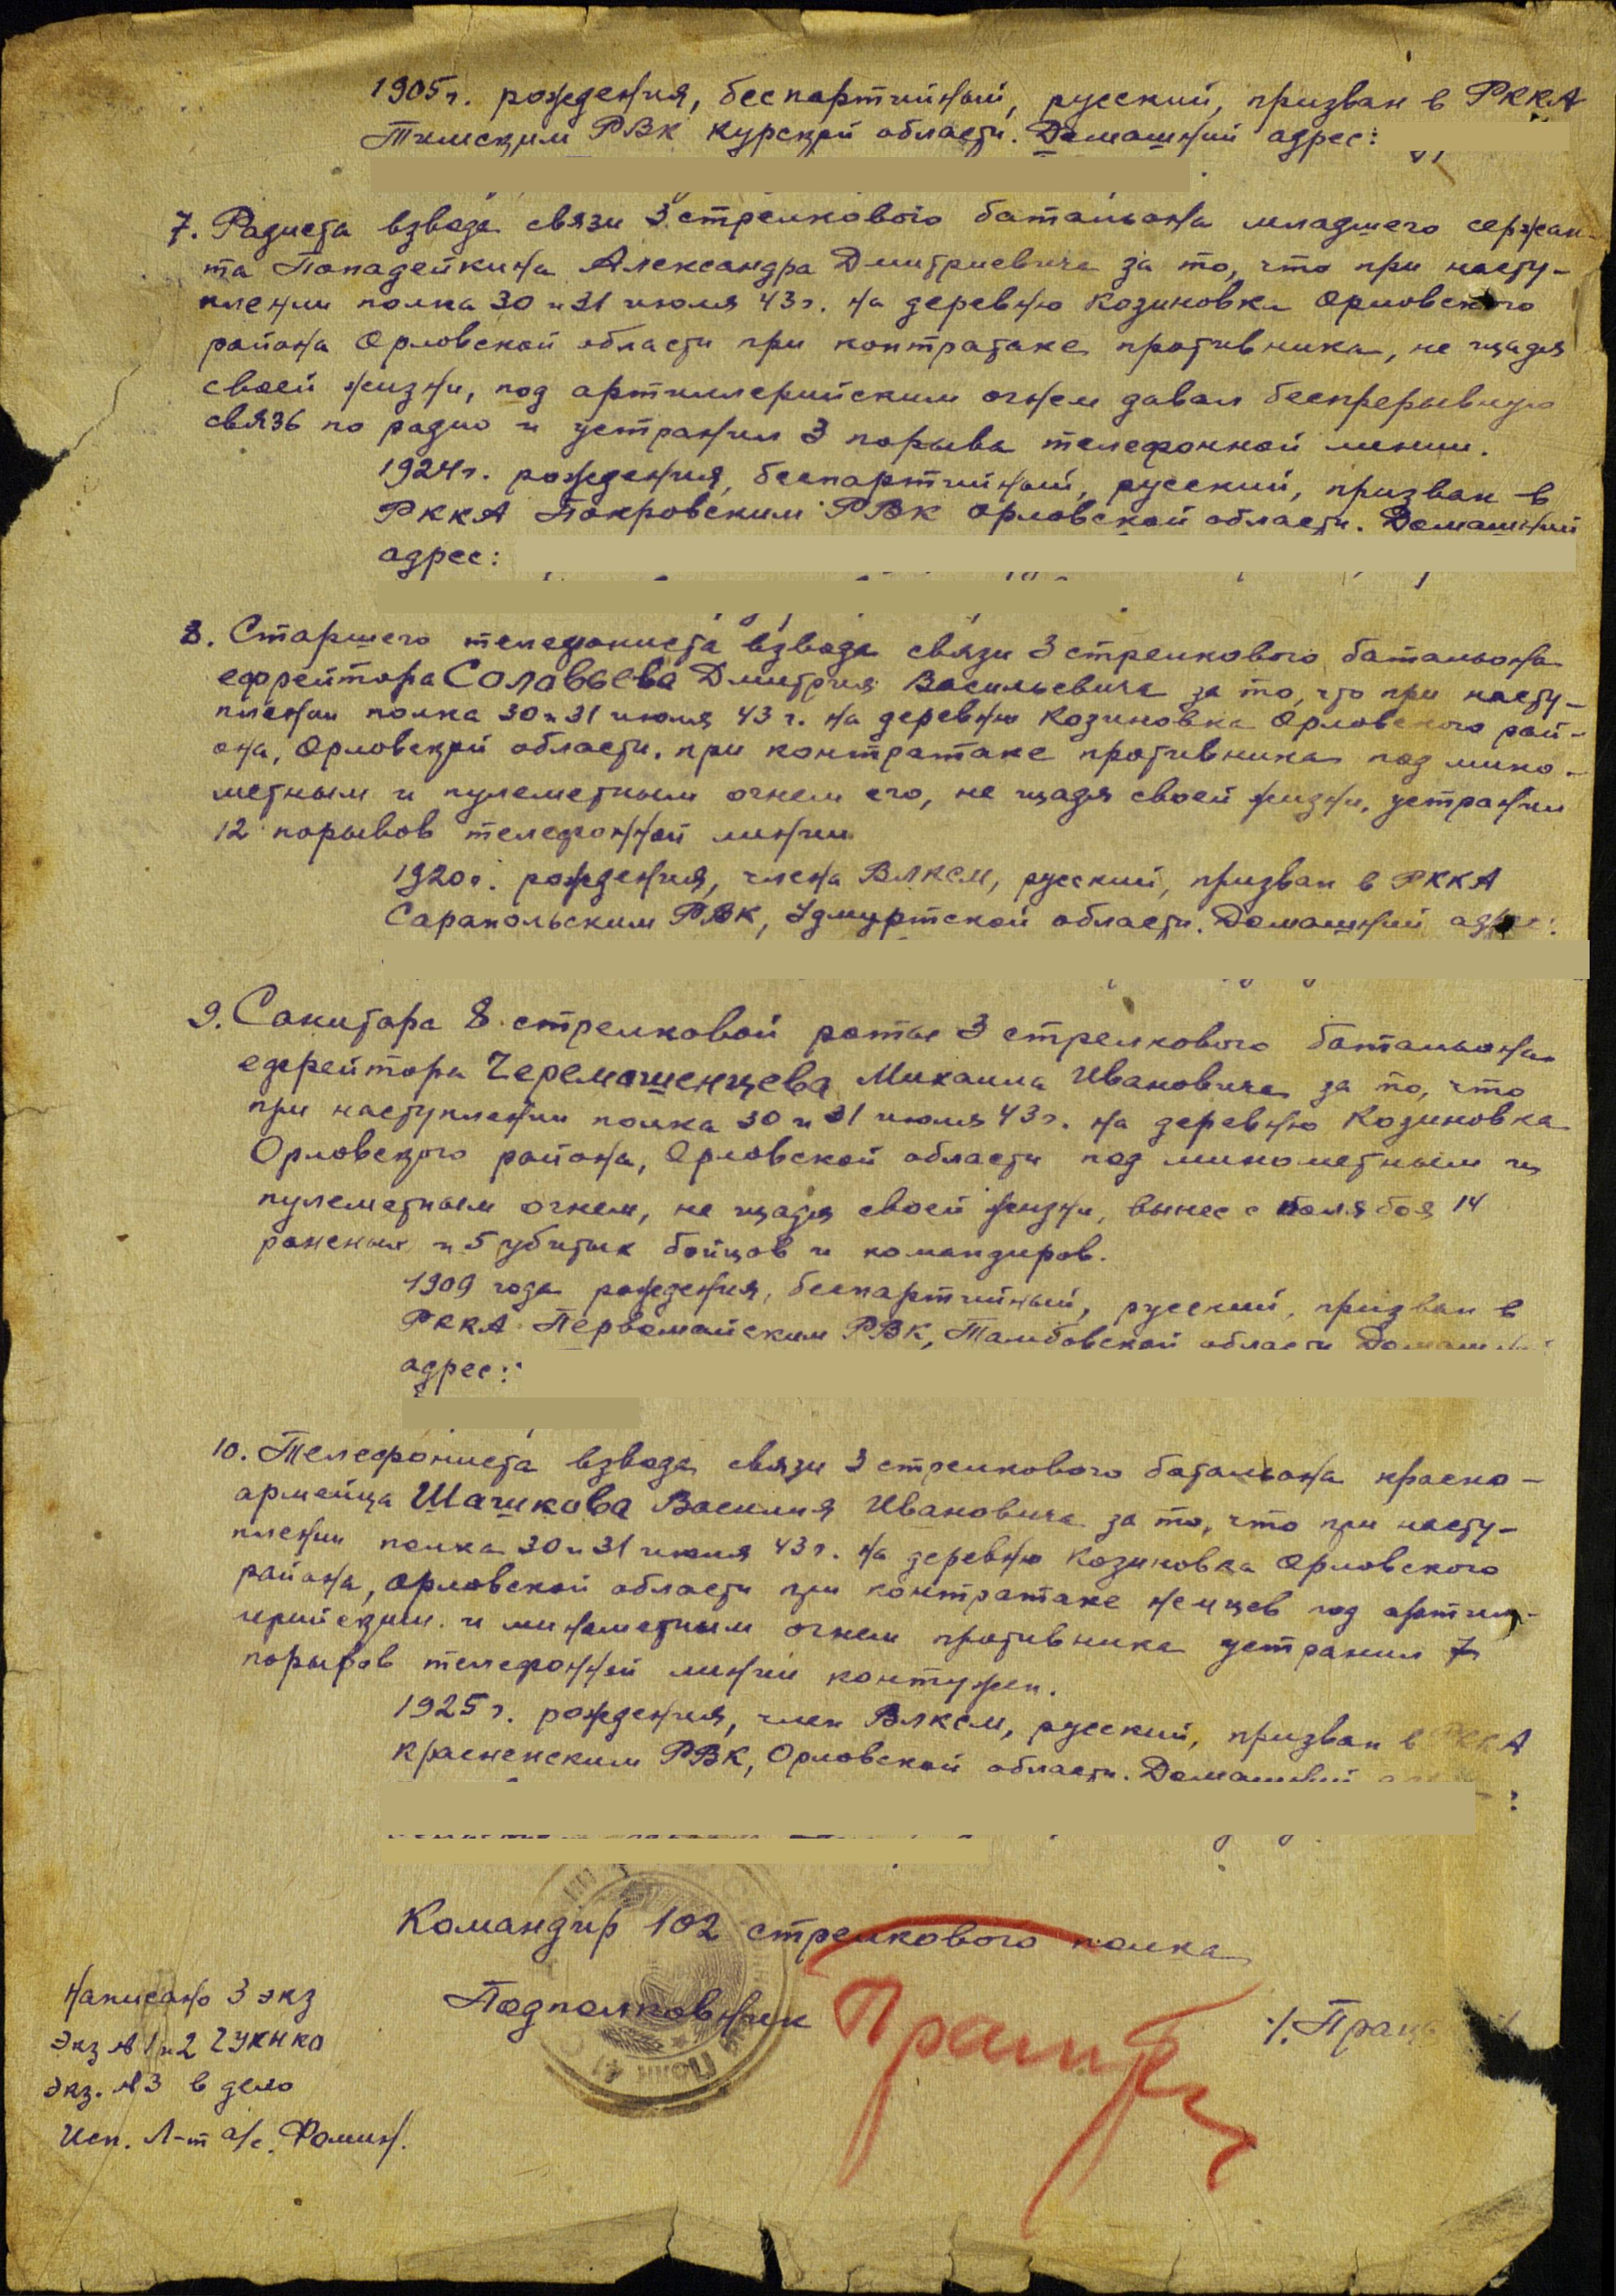 1905г. рождения, беспартийный, русский, призван в РККА
Тимским РВК Курской области. Домашний адрес:
7. Радиста взвода связи 3 стрелкового батальона младшего сержан-
та Попадейкина Александра Дмитриевича за то, что при насту-
плении полка 30 и 31 июля 43г. на деревню Козиновка Орловского
района Орловской области при контратаке противника, не щадя
своей жизни, под артиллерийским огнем давал беспрерывную
связь по радио и устранил 3 порыва телефонной линии.
1924г. рождения, беспартийный, русский, призван в
РККА Покровским РВК Орловской области. Домашний
адрес:
8. Старшего телефониста взвода связи 3 стрелкового батальона
ефрейтора Солавьева Дмитрия Васильевича за то, что при насту-
плении полка 30 и 31 июля 43 г. на деревню Козиновка Орловского рай-
она, Орловской области. при контратаке противника под мино-
метным и пулеметным огнем его, не щадя своей жизни, устранил
12 порывов телефонной линии
1920г. рождения, члена ВЛКСМ, русский, призван в РККА
Сарапольским РВК, Удмуртской области. Домашний адрес:
9. Санитара 8 стрелковой роты 3 стрелкового батальона
ефрейтора Черемошенцева Михаила Ивановича за то, что
при наступлении полка 30 и 31 июля 43г. на деревню Козиновка
Орловского района, Орловской области под минометным и
пулеметным огнем, не щадя своей жизни, вынес с поля боя 14
раненых и 5 убитых бойцов и командиров.
1909 года рождения, беспартийный, русский, призван в
РККА Первомайским РВК, Тамбовской области Домашний
адрес:
10. Телефониста взвода связи 3 стрелкового батальона красно-
армейца Шашкова Василия Ивановича за то, что при насту-
плении полка 30 и 31 июля 43г. на деревню Козиновка Орловского
района, Орловской области при контратаке немцев под артил-
лерийским и минометным огнем противника устранил 7
порывов телефонной линии контужен.
1925г. рождения, член ВЛКСМ, русский, призван в РККА
Красненским РВК, Орловской области. Домашний
Командир 102 стрелкового полка
Подполковник
Написано 3 экз
Экз № 1 и 2 ГУКНКО
Экз. № 3 в дело
Исп. Л-т а/с. Фомин.